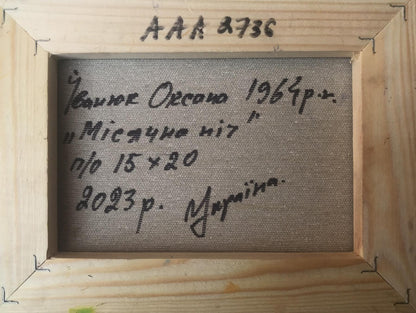 AAA 2736
Іванюк Оксана 1964 р.н.
„Місячна ніч"
п/о 15 x 20
2023 р. Україна.